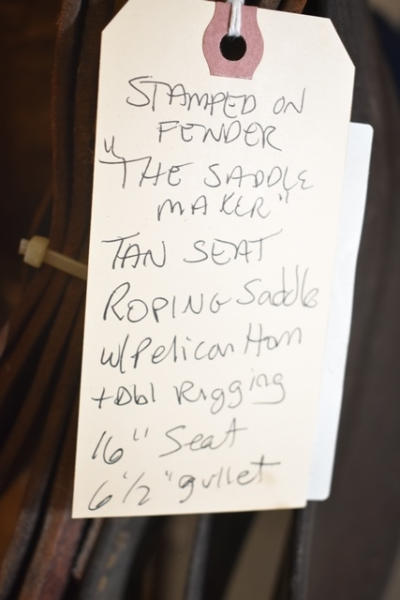 STAMPED ON
FENDER
"THE SADDLE
MAKER"
TAN SEAT
ROPING Saddle
w/Pelican Horn
+Dbl Rigging
16" Seat
6 1/2" gullet